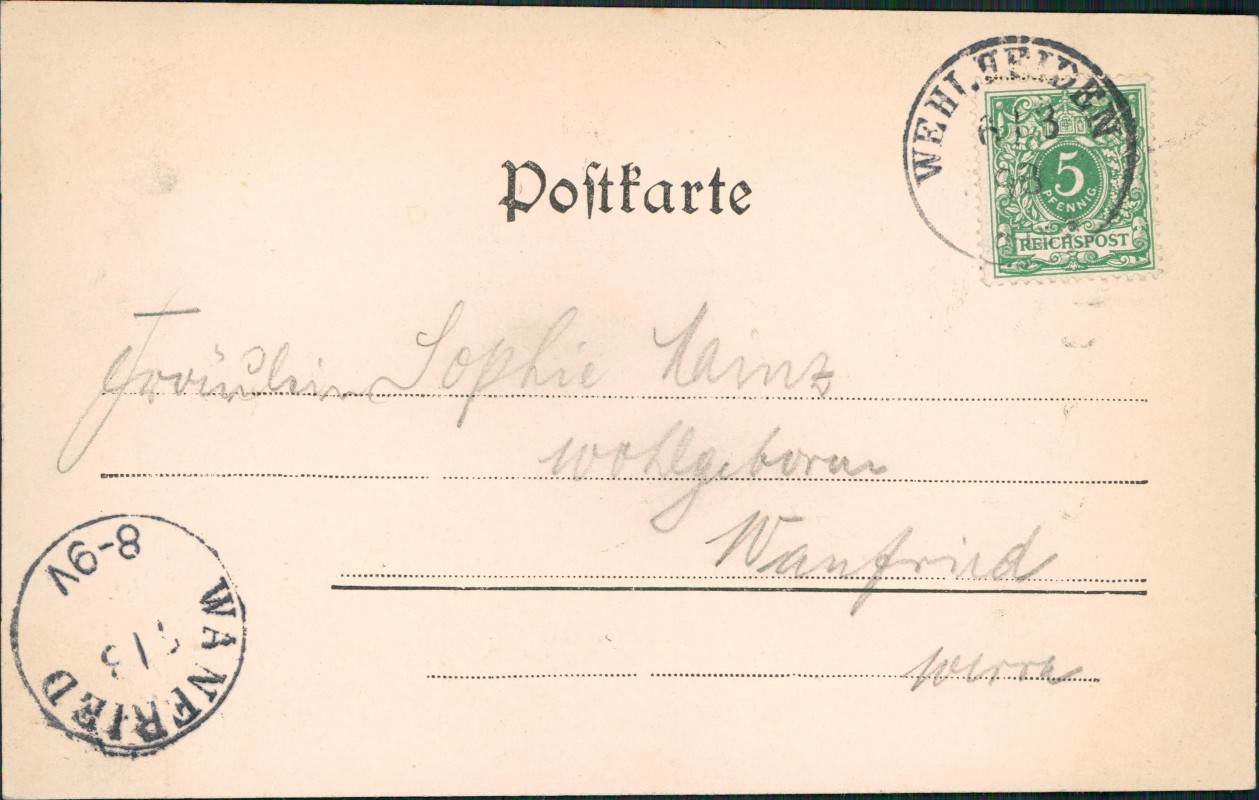 WEHLHEIDEN
6 / 3
98
5
PFENNIG
REICHSPOST
Postkarte
Fräulein Sophie Mainz
wohlgeboren
Wanfried
Werra
WANFRIED
8-9V